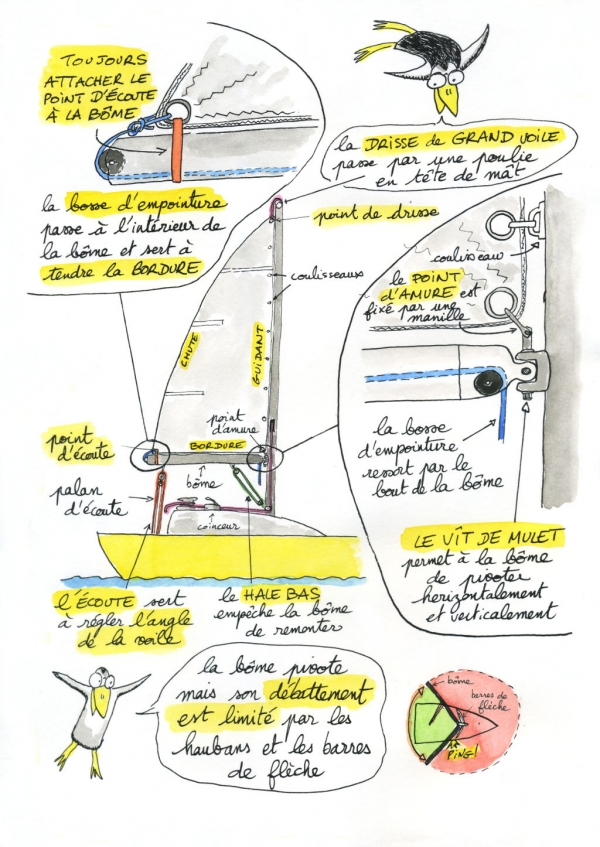 TOUJOURS
ATTACHER LE
POINT D'ÉCOUTE
À LA BÔME
la bosse d'empointure
passe à l'intérieur de
la bôme et sert à
tendre la BORDURE
la DRISSE de GRAND VOILE
passe par une poulie
en tête de mât
point de drisse
coulisseaux
CHUTE
GUIDANT
point
d'amure
BORDURE
bôme
point
d'écoute
palan
d'écoute
coinceur
coulisseau
le POINT
D'AMURE est
fixé par une
manille
la bosse
d'empointure
ressort par le
bout de la bôme
LE VÎT DE MULET
permet à la bôme
de pivoter
horizontalement
et verticalement
l'ÉCOUTE sert
à régler l'angle
de la voile
le HALE BAS
empêche la bôme
de remonter
la bôme pivote
mais son débattement
est limité par les
haubans et les barres
de flèche
bôme
barres de
flèche
PING!